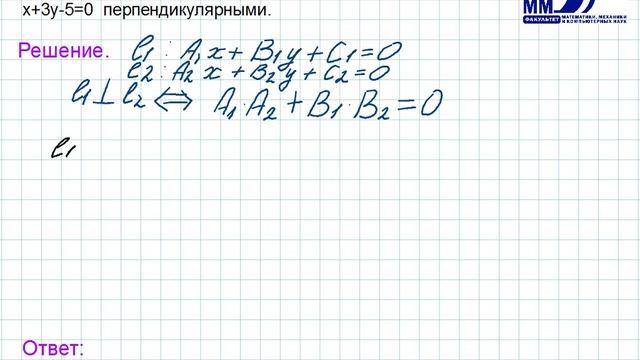 x+3y-5=0 перпендикулярными.
ММ
ФАКУЛЬТЕТ МАТЕМАТИКИ, МЕХАНИКИ И КОМПЬЮТЕРНЫХ НАУК
Решение. l1 : A1x + B1y + C1 = 0
l2 : A2x + B2y + C2 = 0
l1 ⊥ l2 ⟺ A1·A2 + B1·B2 = 0
l1
Ответ: